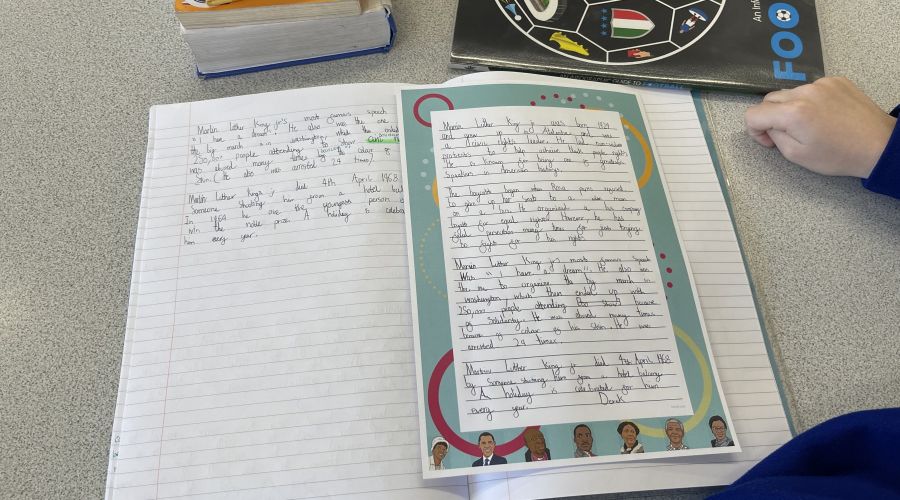 An Inf
FOO
GUIDE TO
Martin Luther King jr's most famous speech
" I have a dream". He also was the one
the big march in washington, which the ended
250,000 people attending to show
was abused many times because colour of
Skin (He also was arrested 29 times)
Martin Luther King jr died 4th April 1968
Someone Shooting him from a hotel bal
In 1964 he was the youngest person
win the noble prize. A holiday is celebra
him every year.
Martin Luther King jr was born 1929
and grew up in Alabama and was
a rights leader. He led non-violent
protests to help achieve black people rights.
He is known for being one of greatest
Speakers in American history.
The boycotts began when Rosa parks refused
to give up her seat to a white man
on a bus. He organised a bus company
for equal rights. However, he has
faced many times for just trying
to for his rights
Martin Luther King jr's most famous speech
Was " I have a dream". He also was
the one to organise the big march in
washington, which then ended up with
250,000 people attending to show because
of Solidarity. He was abused many times
because of colour of his skin. He was
arrested 29 times.
Martin Luther King jr died 4th April 1968
by someone shooting him from a hotel balcony
A holiday is celebrated for him
every year. Derek